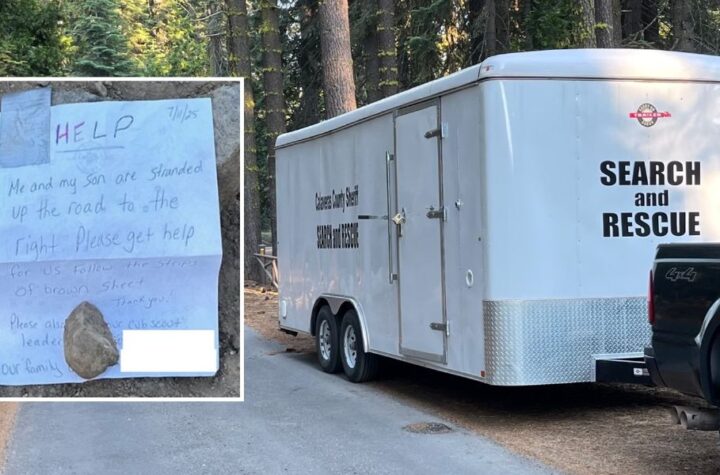 HELP 7/11/25
Me and my son are stranded
up the road to the
right. Please get help
for us. Follow the strips
of brown sheet
Thank you!
Please our cub scout
leader
our family
Calaveras County Sheriff
SEARCH and RESCUE
TRAILER
SEARCH
and
RESCUE
4x4